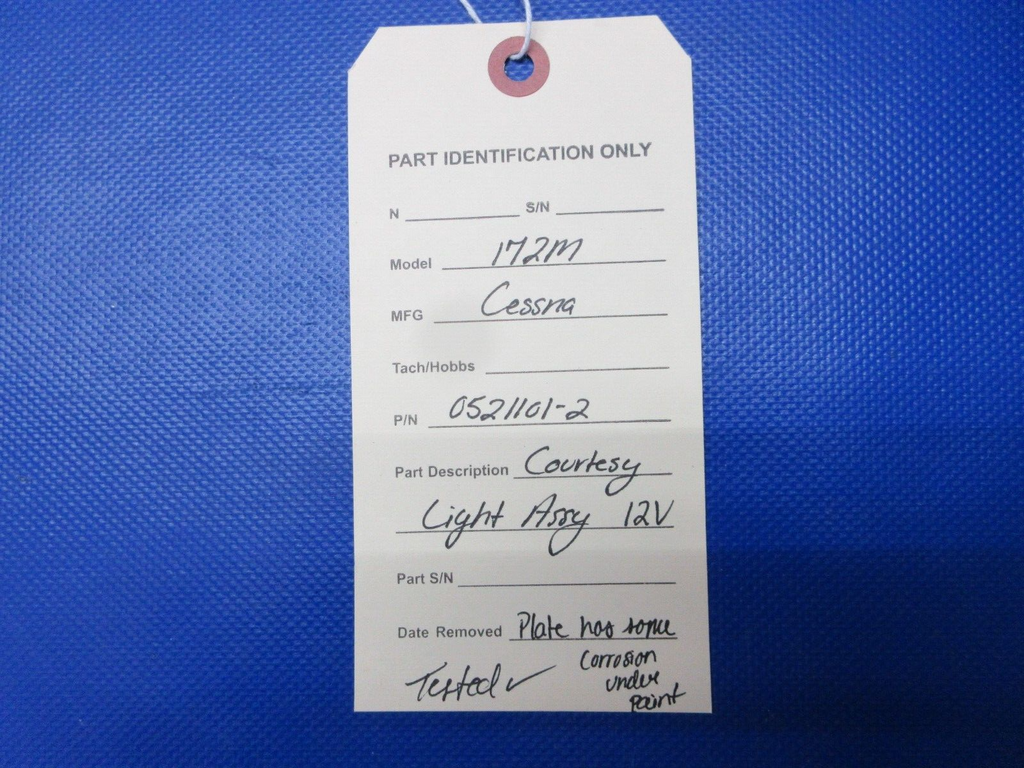 PART IDENTIFICATION ONLY
N S/N
Model 172M
MFG Cessna
Tach/Hobbs
P/N 0521101-2
Part Description Courtesy
Light Assy 12V
Part S/N
Date Removed Plate has some
Corrosion
under
paint
Tested ✓